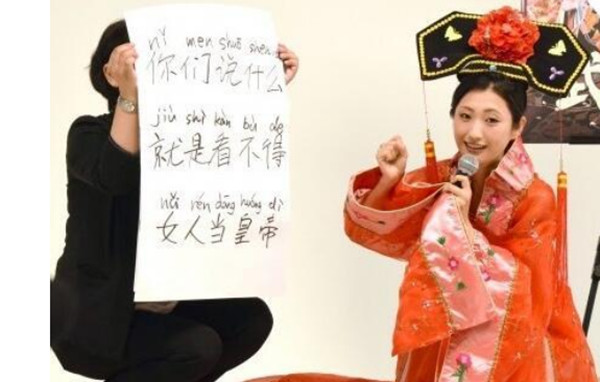 nǐ men shuō shén
你们说什么
jiù shì kàn bù de
就是看不得
nǚ rén dāng huáng dì
女人当皇帝
式